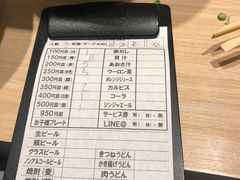 人数 名様 テーブルNO.
100円皿(白) 赤だし
150円皿(青) 11 貝汁
200円皿 5 あおさ汁
250円皿 2 ウーロン茶
300円皿 オレンジジュース
350円皿 2 カルピス
400円皿 コーラ
500円皿 1 ジンジャエール
950円皿 サービス券 有( 枚)・無
お子様プレート LINE@ 有( 枚)・無
生ビール
瓶ビール
グラスビール きつねうどん
ノンアルコールビール かき揚げうどん
焼酎(麦) 肉うどん